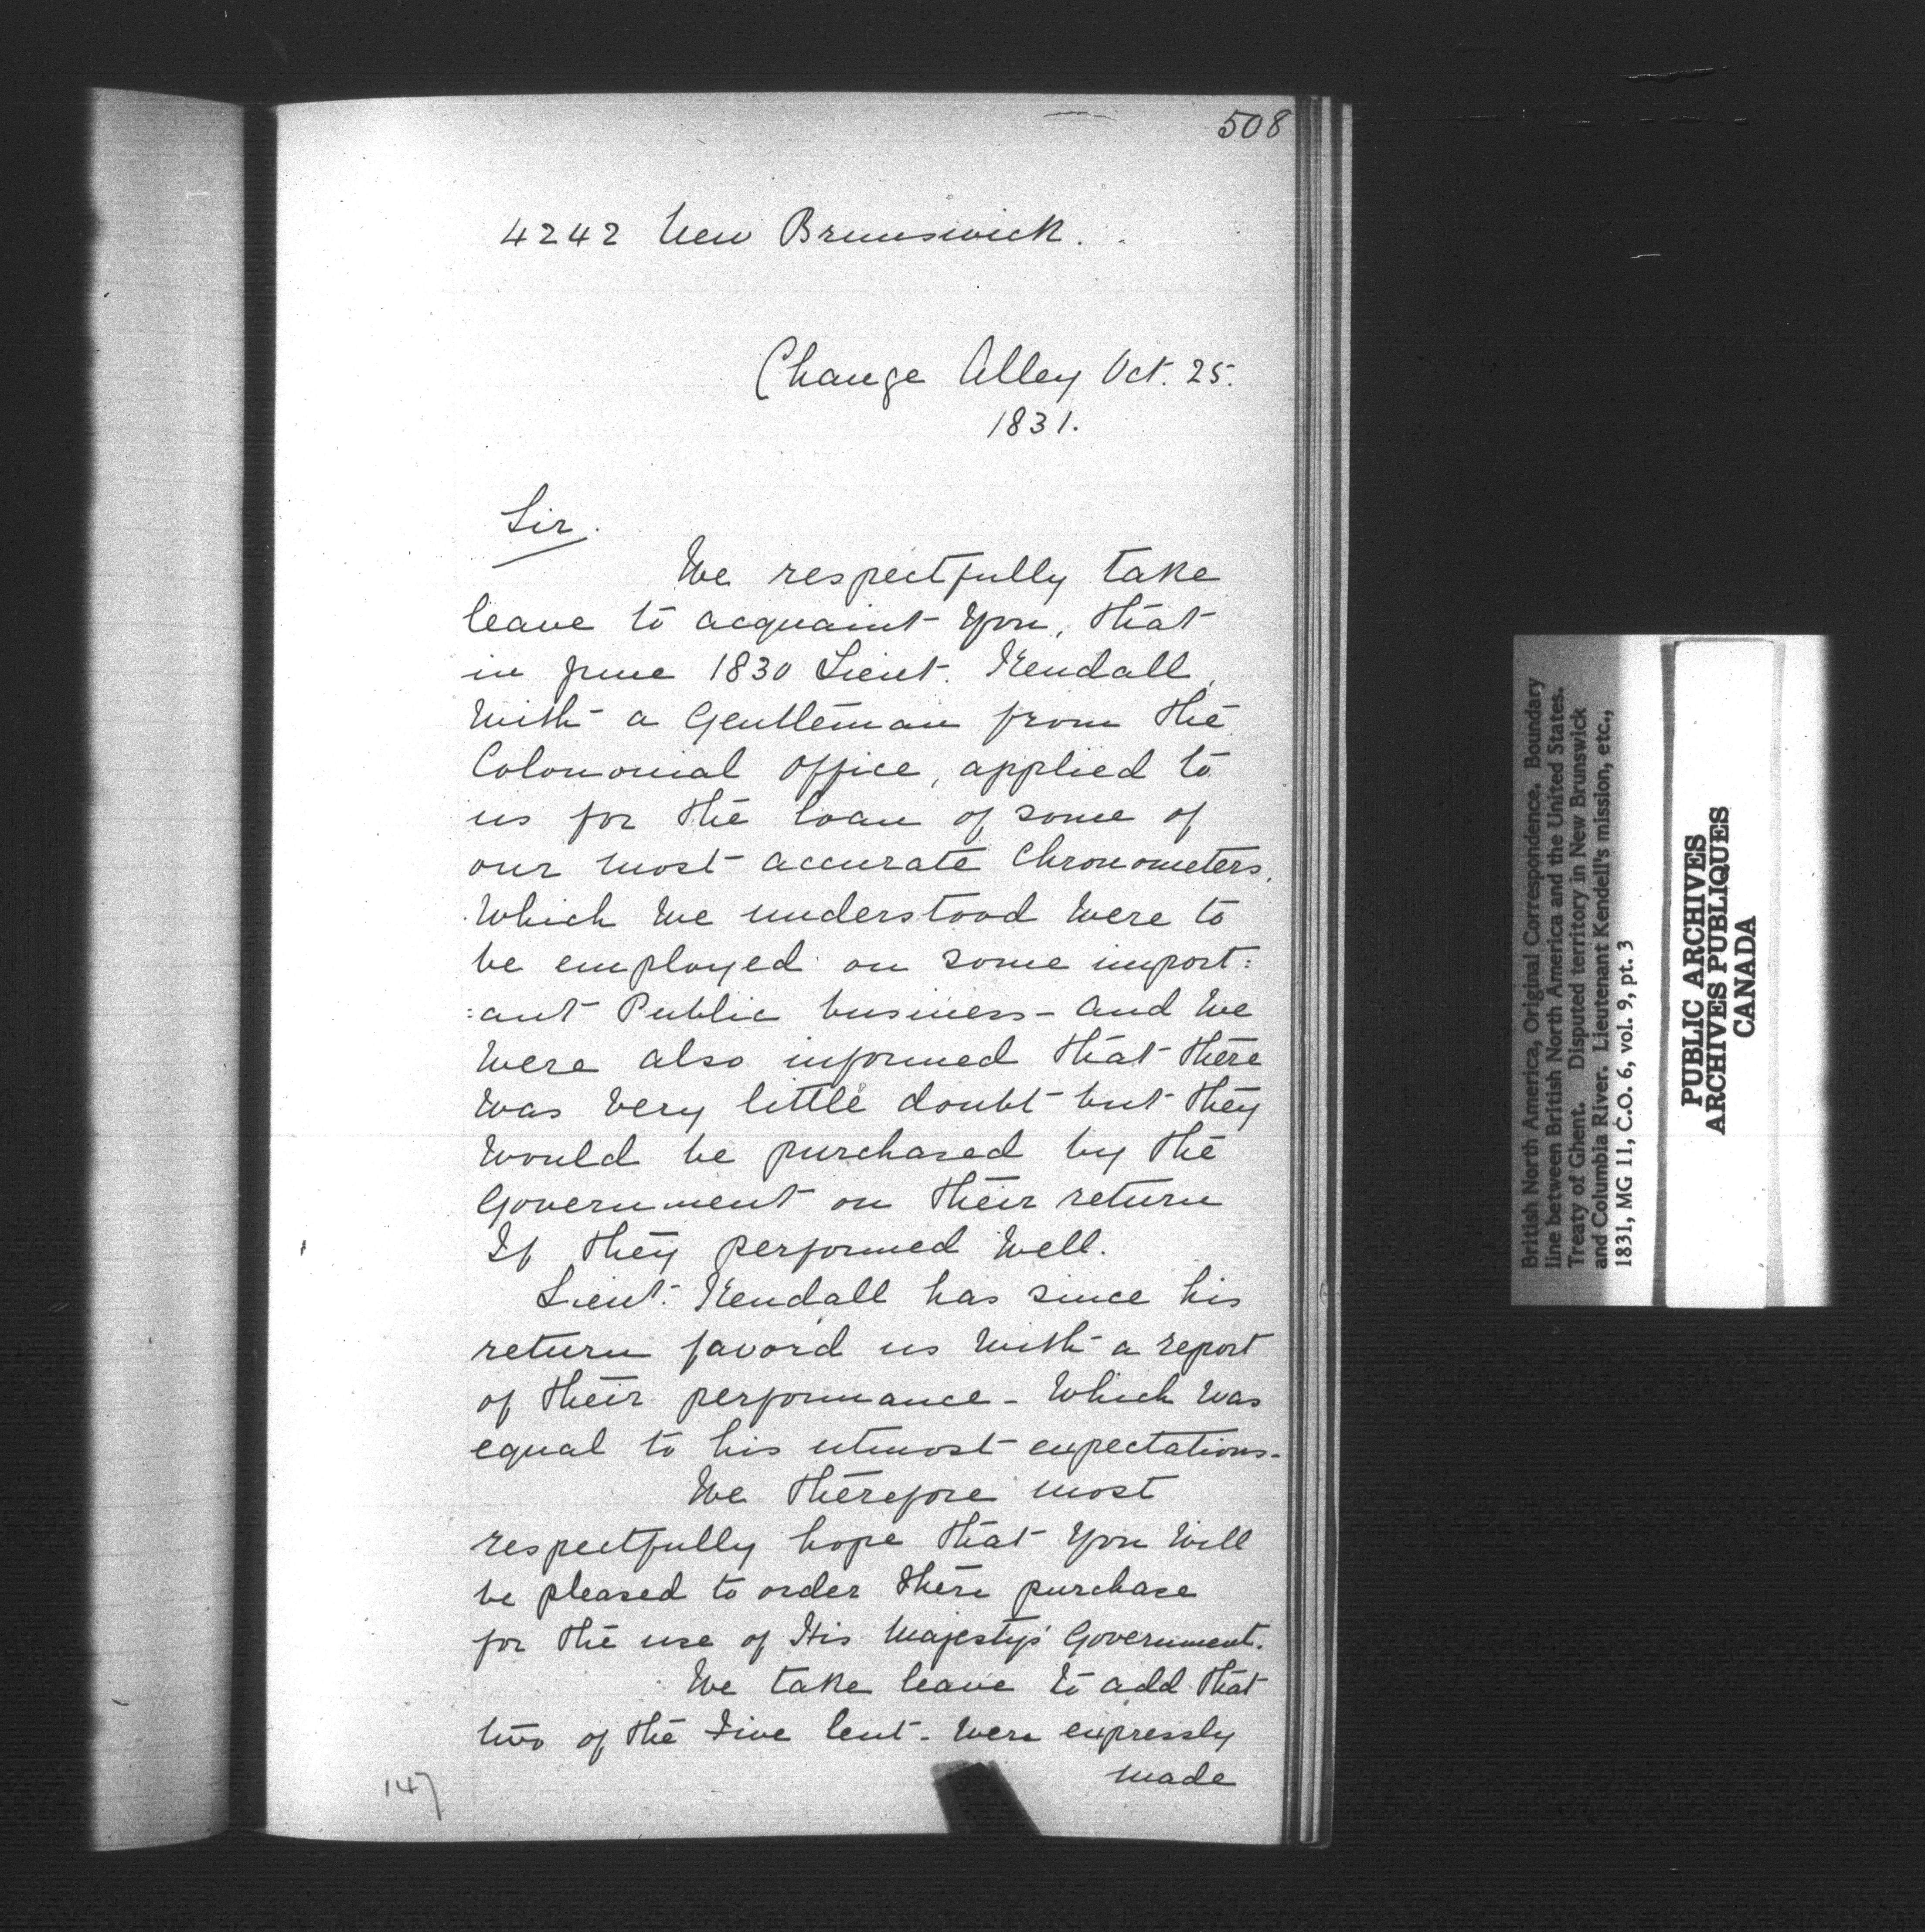 508
4242 New Brunswick.
Change Alley Oct. 25.
1831.
Sir.
We respectfully take
leave to acquaint You, that
in June 1830 Lieut. Kendall,
With a Gentleman from the
Colononial Office, applied to
us for the loan of some of
our most accurate Chronometers,
Which We understood Were to
be employed on some import:
:ant Public business - and We
Were also informed that there
Was Very little doubt but they
Would be purchased by the
Government on their return
If they performed Well.
Lieut. Kendall has since his
return favord us With a report
of their performance - Which Was
equal to his utmost expectations -
We therefore most
respectfully hope that You Will
be pleased to order their purchase
for the use of His Majesty's Government.
We take leave to add that
two of the Five lent - Were expressly
made
147
British North America, Original Correspondence. Boundary
line between British North America and the United States.
Treaty of Ghent. Disputed territory in New Brunswick
and Columbia River. Lieutenant Kendell's mission, etc.,
1831, MG 11, C.O. 6, vol. 9, pt. 3
PUBLIC ARCHIVES
ARCHIVES PUBLIQUES
CANADA